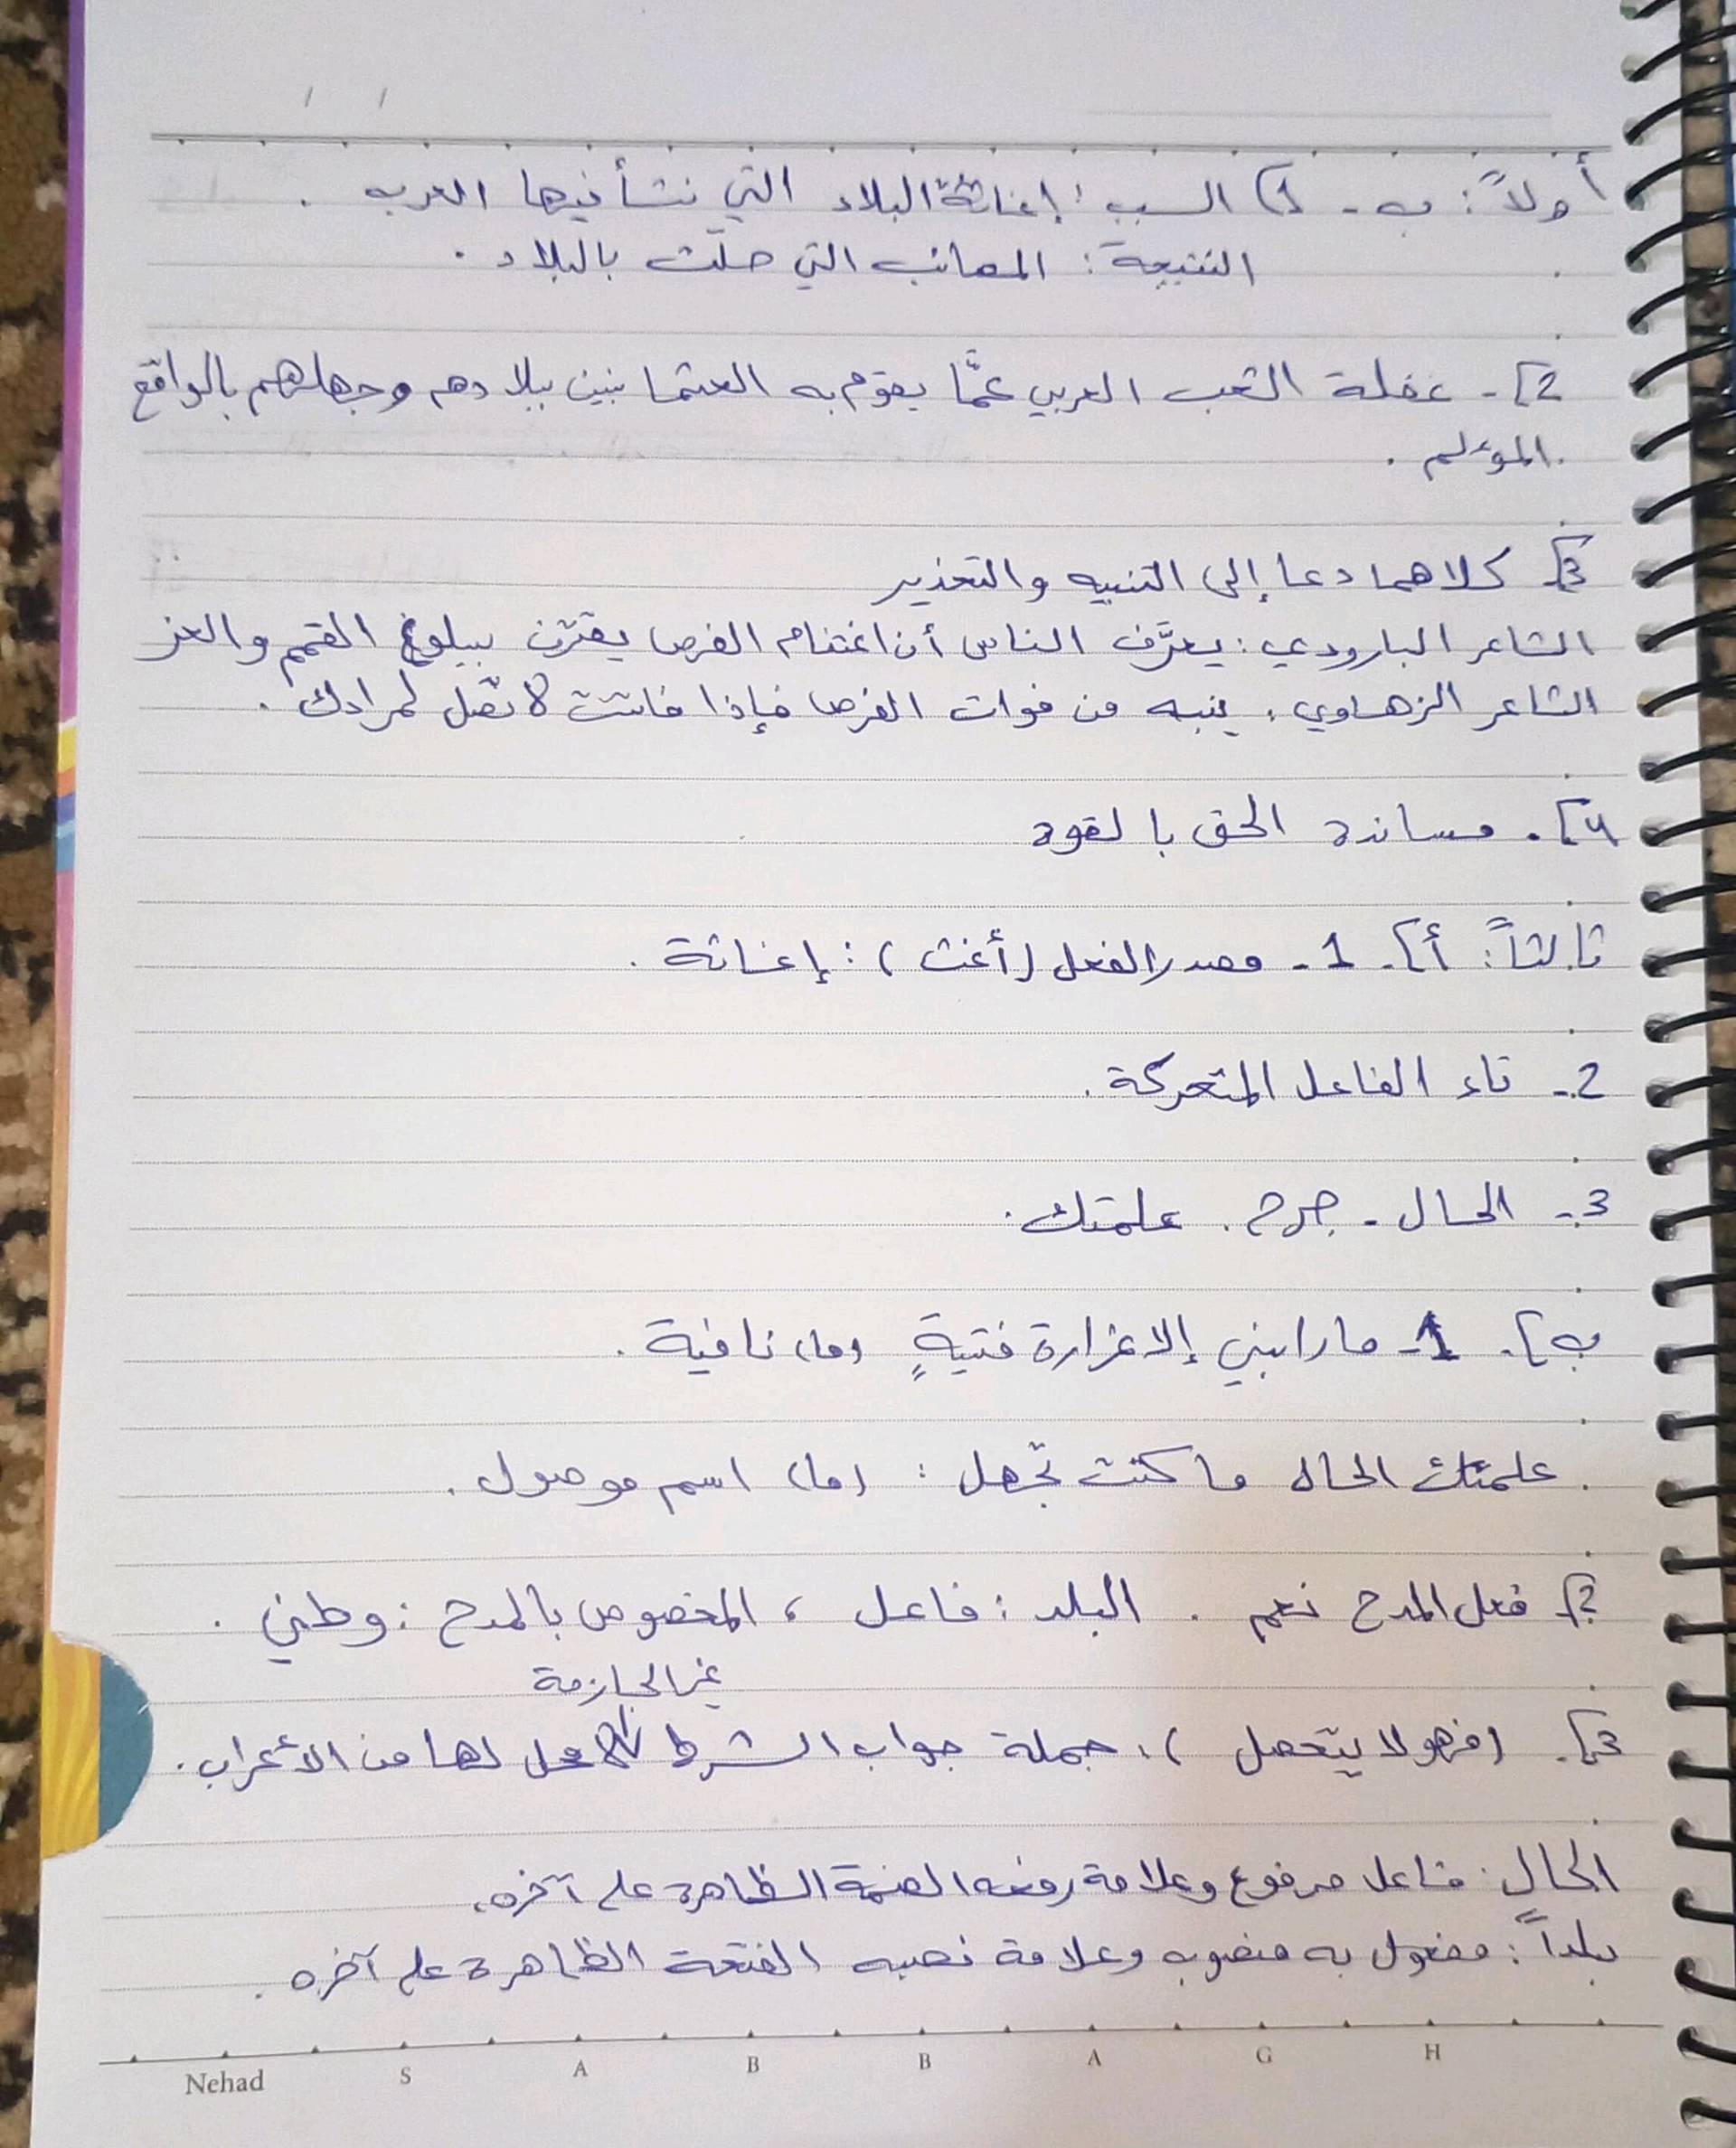 أولاً: ب - 1) السبب: إغاثة البلاد التي نشأ فيها العرب.
النتيجة: المصائب التي حلّت بالبلاد.
2]- غفلة الشعب العربي عمّا يقوم به العثمانيين ببلادهم وجهلهم بالواقع
المؤلم.
3]- كلاهما دعا إلى التنبيه والتحذير
الشاعر البارودي: يعرّف الناس أن اغتنام الفرص يقترن ببلوغ القمم والعز
الشاعر الزهاوي: ينبه من فوات الفرص فإذا فاتت لا تصل لمرادك.
4]. مساندة الحق بالقوة
ثالثاً: أ]. 1- مصدر الفعل (أغث): إغاثة.
2- تاء الفاعل المتحركة.
3- الحال - جرح. علمتك.
ب]. 1- ما رابني إلا غرارة فتيةٍ (ما) نافية.
علمتك الحال ما كنت تجهل: (ما) اسم موصول.
2]- فعل المدح نعم. البلد: فاعل، المخصوص بالمدح: وطني.
غير الجازمة
3]. (فهو لا يتحصل). جملة جواب الشرط لا محل لها من الأعراب.
الحال: فاعل مرفوع وعلامة رفعه الضمة الظاهرة على آخره.
بلداً: مفعول به منصوب وعلامة نصبه الفتحة الظاهرة على آخره.
Nehad S A B B A G H